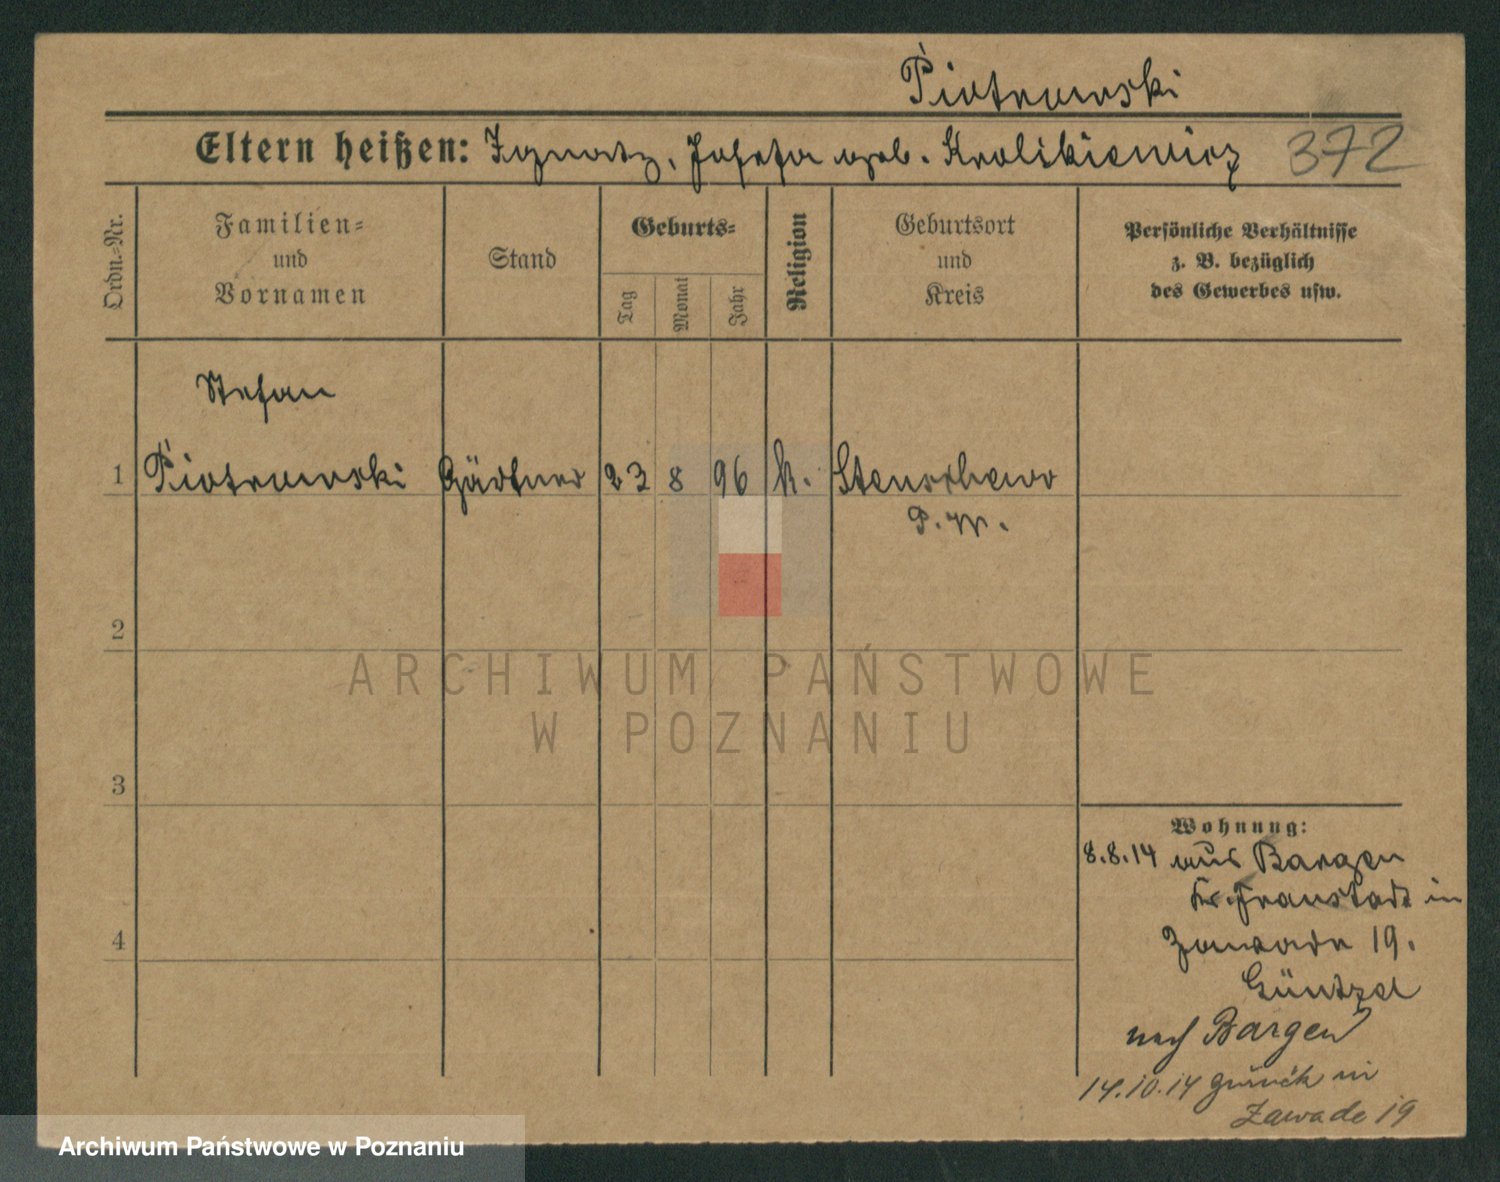 Piotrowski
Eltern heißen: Ignatz, Josefa geb. Krolikiewicz 372
Ordn.=Nr.
Familien=
und
Vornamen
Stand
Geburts=
Tag
Monat
Jahr
Religion
Geburtsort
und
Kreis
Persönliche Verhältnisse
z. B. bezüglich
des Gewerbes usw.
Stefan
1 Piotrowski Gärtner 23 8 96 k. Stenschewo
P. W.
2
3
4
Wohnung:
8.8.14 aus Bargen
Kr. Fraustadt in
Zawade 19.
Güntzel
nach Bargen
14.10.14 zurück in
Zawade 19
ARCHIWUM PAŃSTWOWE
W POZNANIU
Archiwum Państwowe w Poznaniu